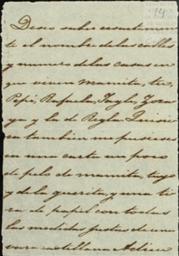 14
Deseo saber exactamen-
te el nombre de las calles
y numero de las casas en
que viven Mamita, tu,
Pepe, Rafaela, Tayle, Zoca-
ya y la de Regla. Quisie-
ra tambien me pusieses
en una carta un poco
de pelo de mamita, tuyo
y de la guerita, y una ti-
ra de papel con todas
las medidas justas de una
vara castellana. Adios